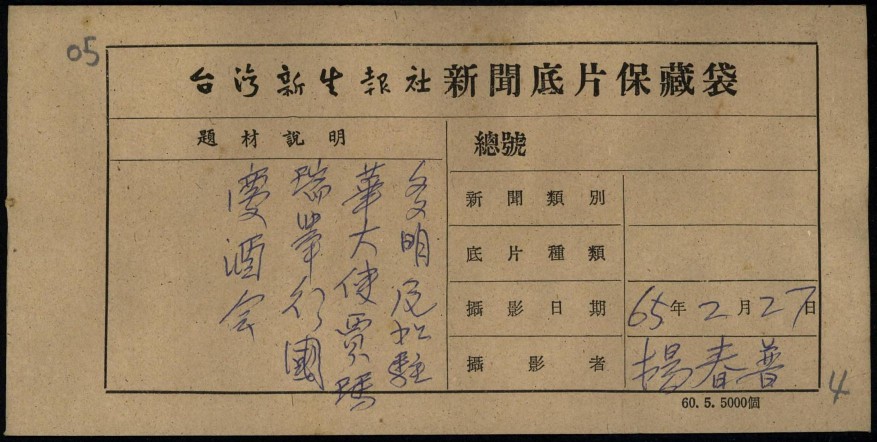 05
台灣新生報社新聞底片保藏袋
題材說明
多明尼加駐
華大使賈瑪
瑞舉行國
慶酒会
總號
新聞類別
底片種類
攝影日期 65年2月27日
攝影者 楊春普
60.5.5000個
4